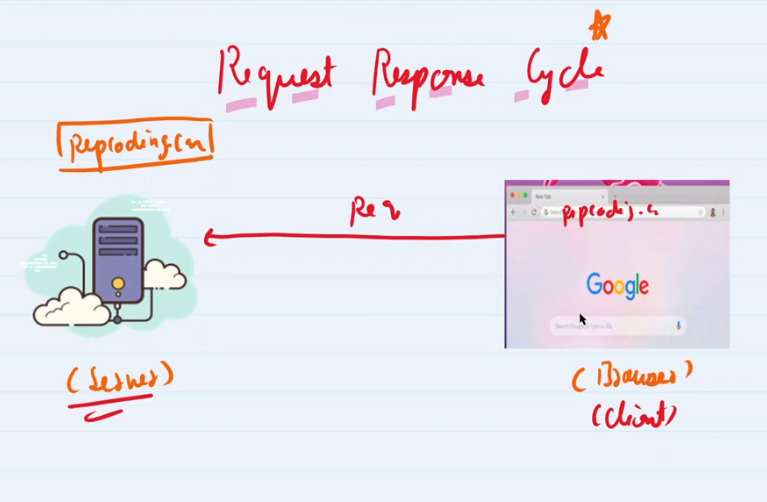 Request Response Cycle
Pepcoding.com
Req
New Tab
pepcoding.c
Google
Search Google or type a URL
(Server)
(Browser)
(Client)